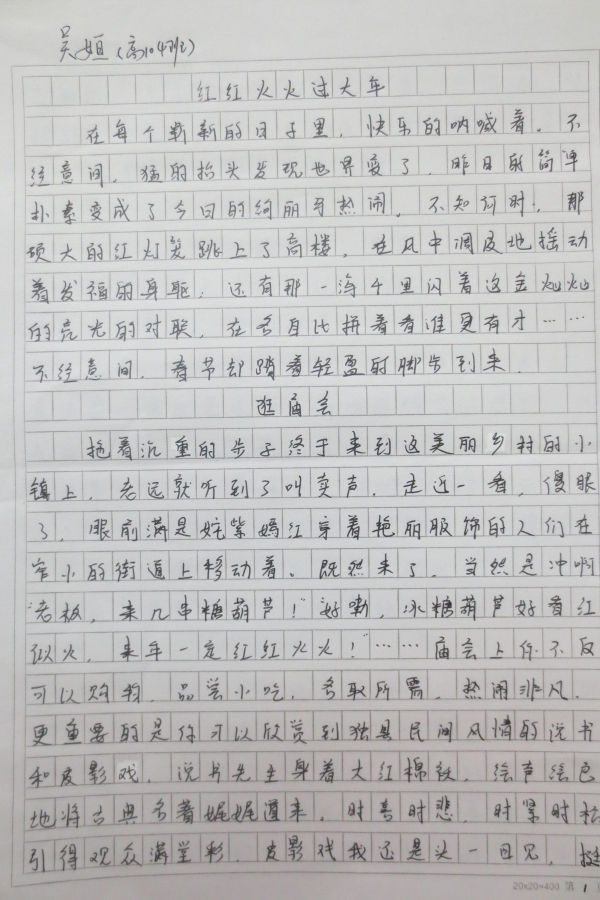 吴姮(高104班)
红红火火过大年
在每个崭新的日子里，快乐的呐喊着。不
经意间，猛的抬头发现世界变了，昨日的简单
朴素变成了今日的绚丽与热闹，不知何时，那
硕大的红灯笼跳上了高楼，在风中调皮地摇动
着发福的身躯；还有那一海4里闪着这金灿灿
的亮光的对联，在各自比拼着看谁更有才……
不经意间，春节却踏着轻盈的脚步到来。
逛庙会
拖着沉重的步子终于来到这美丽乡村的小
镇上，老远就听到了叫卖声，走近一看，傻眼
了，眼前满是姹紫嫣红穿着艳丽服饰的人们在
窄小的街道上移动着。既然来了，当然是冲啊
"老板，来几串糖葫芦！""好嘞，冰糖葫芦好着红
似火，来年一定红红火火！"……庙会上你不仅
可以购物，品尝小吃，各取所需，热闹非凡，
更重要的是你可以欣赏到独具民间风情的说书
和皮影戏，说书先生身着大红棉袄，绘声绘色
地将古典名著娓娓道来，时喜时悲，时紧时松
引得观众满堂彩，皮影戏我还是头一回见，挺
20×20=400 第 1